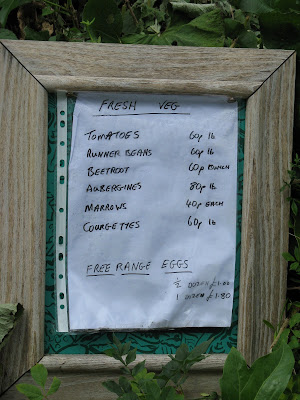 FRESH VEG
TOMATOES 60p lb
RUNNER BEANS 60p lb
BEETROOT 60p BUNCH
AUBERGINES 80p lb
MARROWS 40p EACH
COURGETTES 60p lb
FREE RANGE EGGS
½ DOZEN £1.00
1 DOZEN £1.80